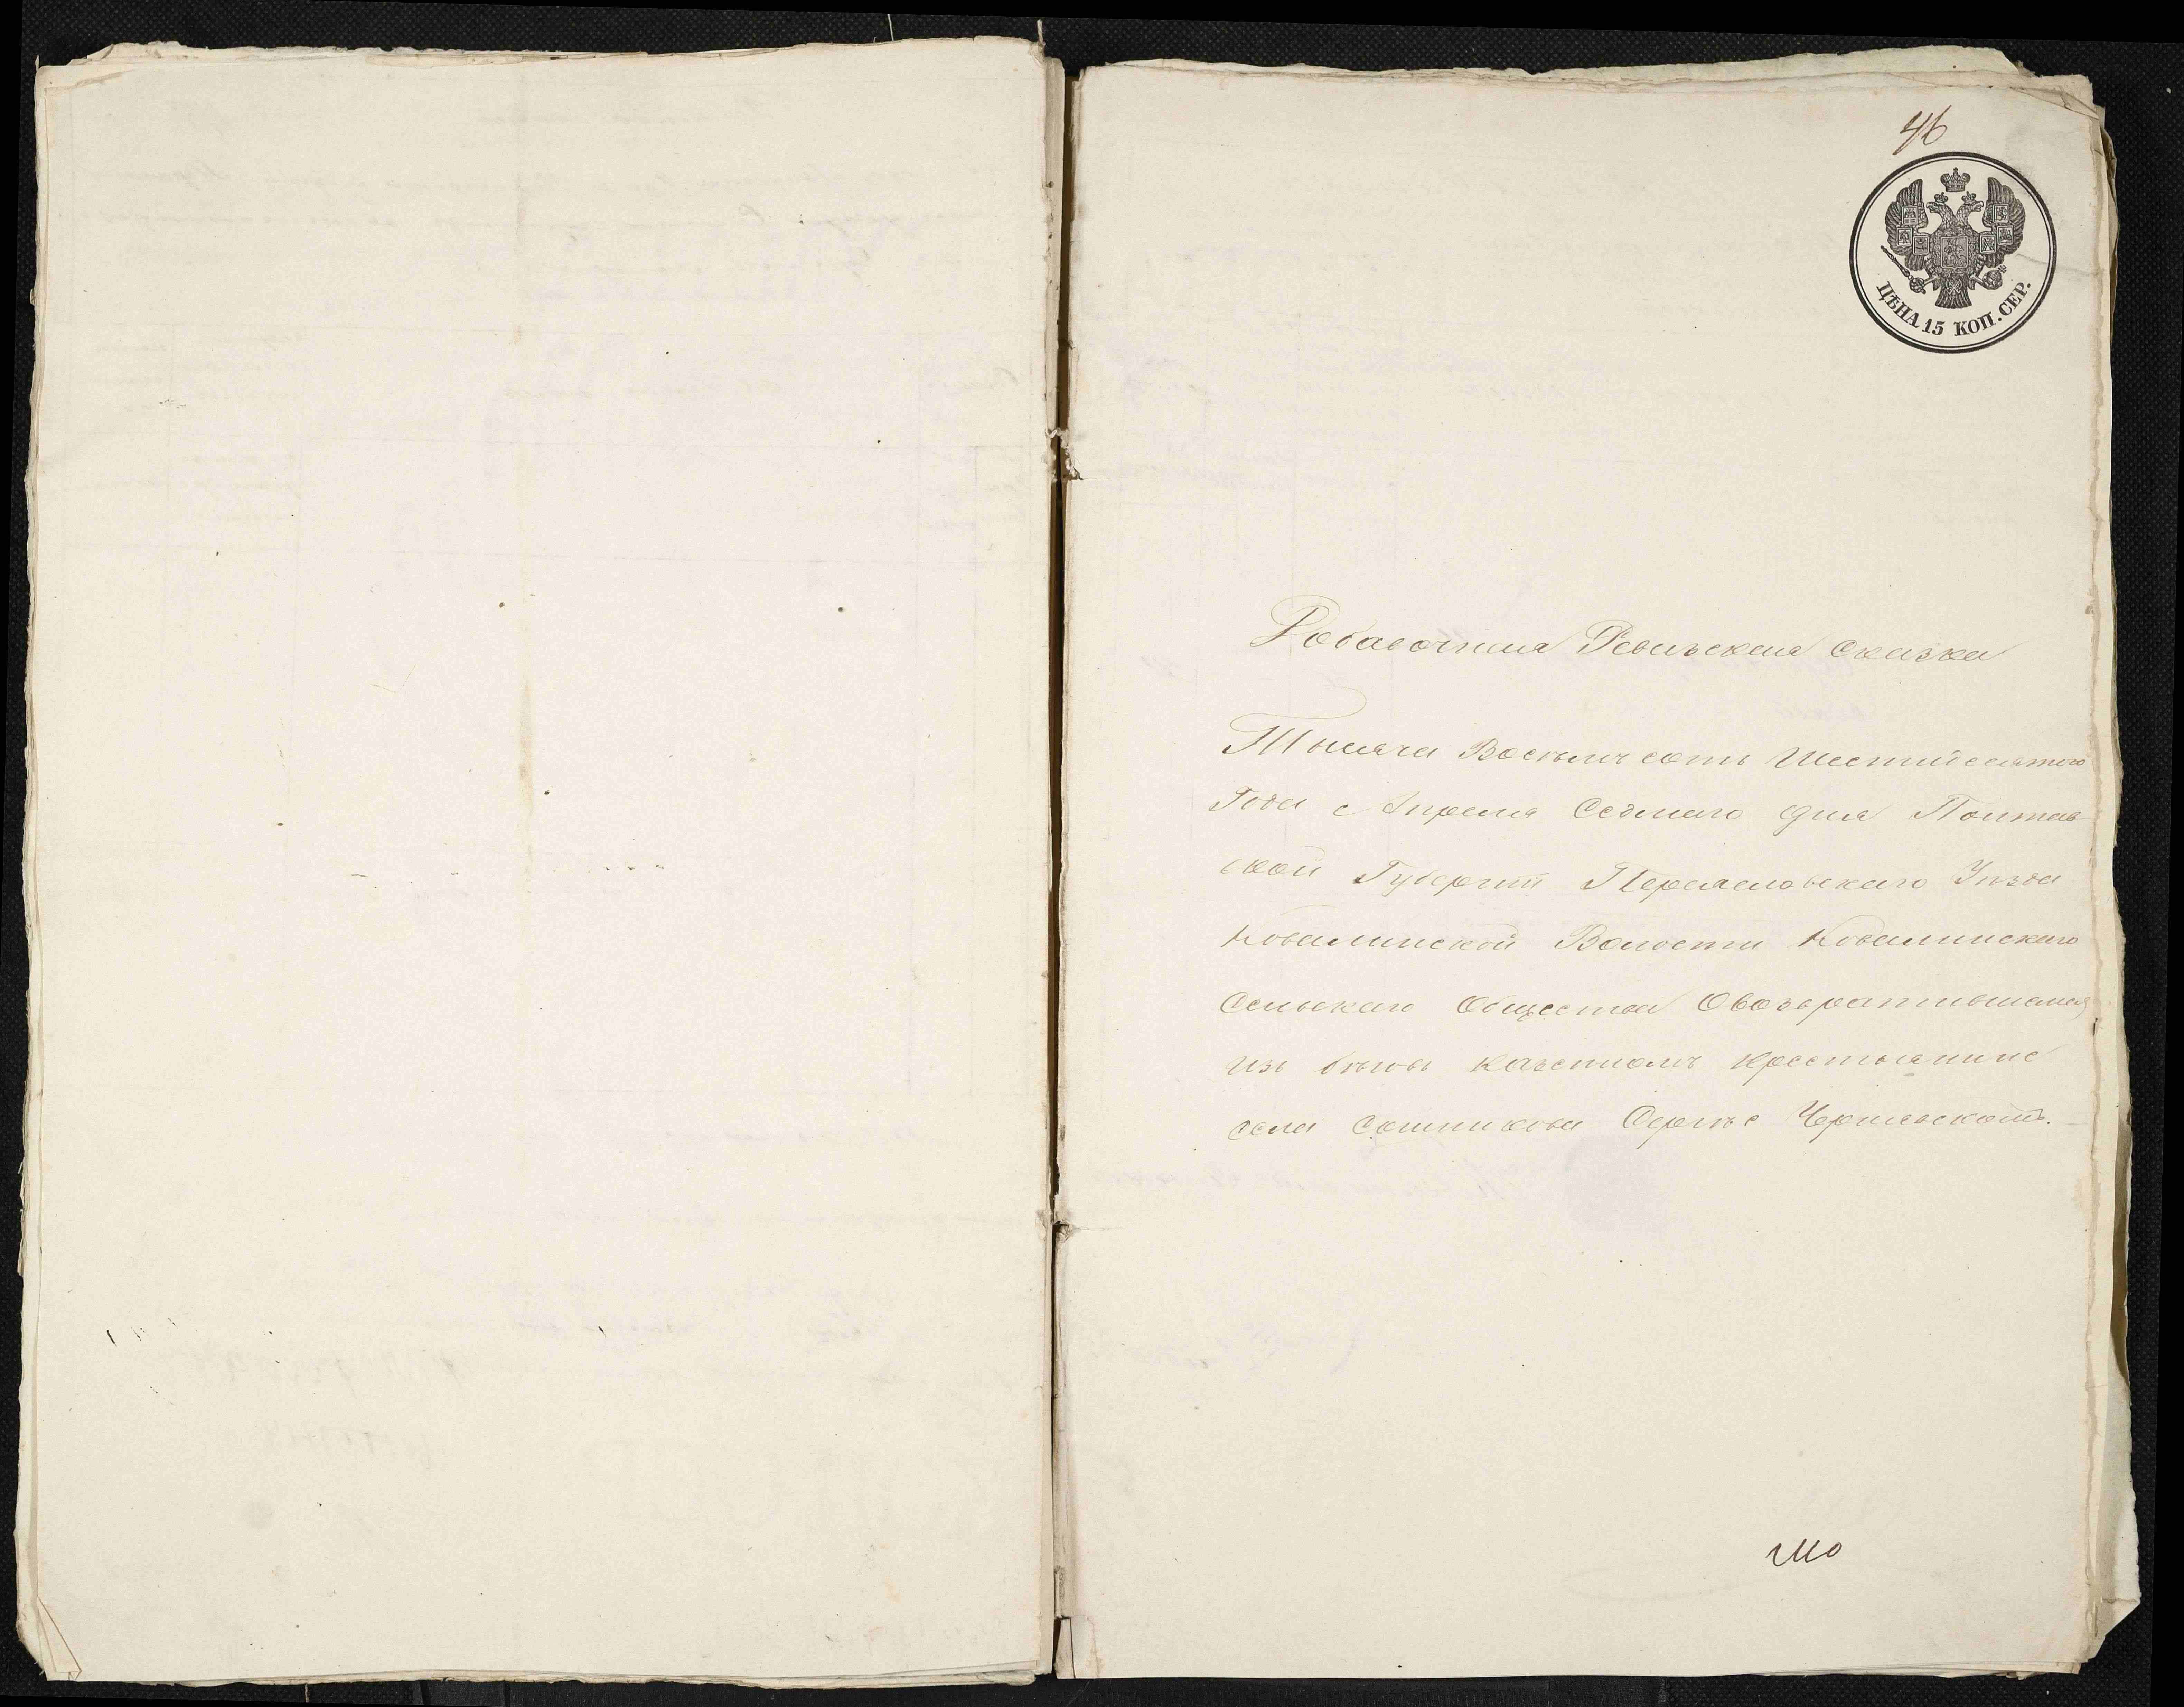 46
ЦѢНА 15 КОП. СЕР.
Добавочная Ревизская сказка
Тысяча Восемь сотъ Шестидесятого
Года Апреля Седмаго дня Полтав
ской Губерніи Переяславскаго Уѣзда
Ковалинской Волости Ковалинскаго
Сельскаго Общества Овозвратившемся
изъ бѣговъ казенномъ крестьянине
села Сошникова Сергѣе Чернявскомъ.